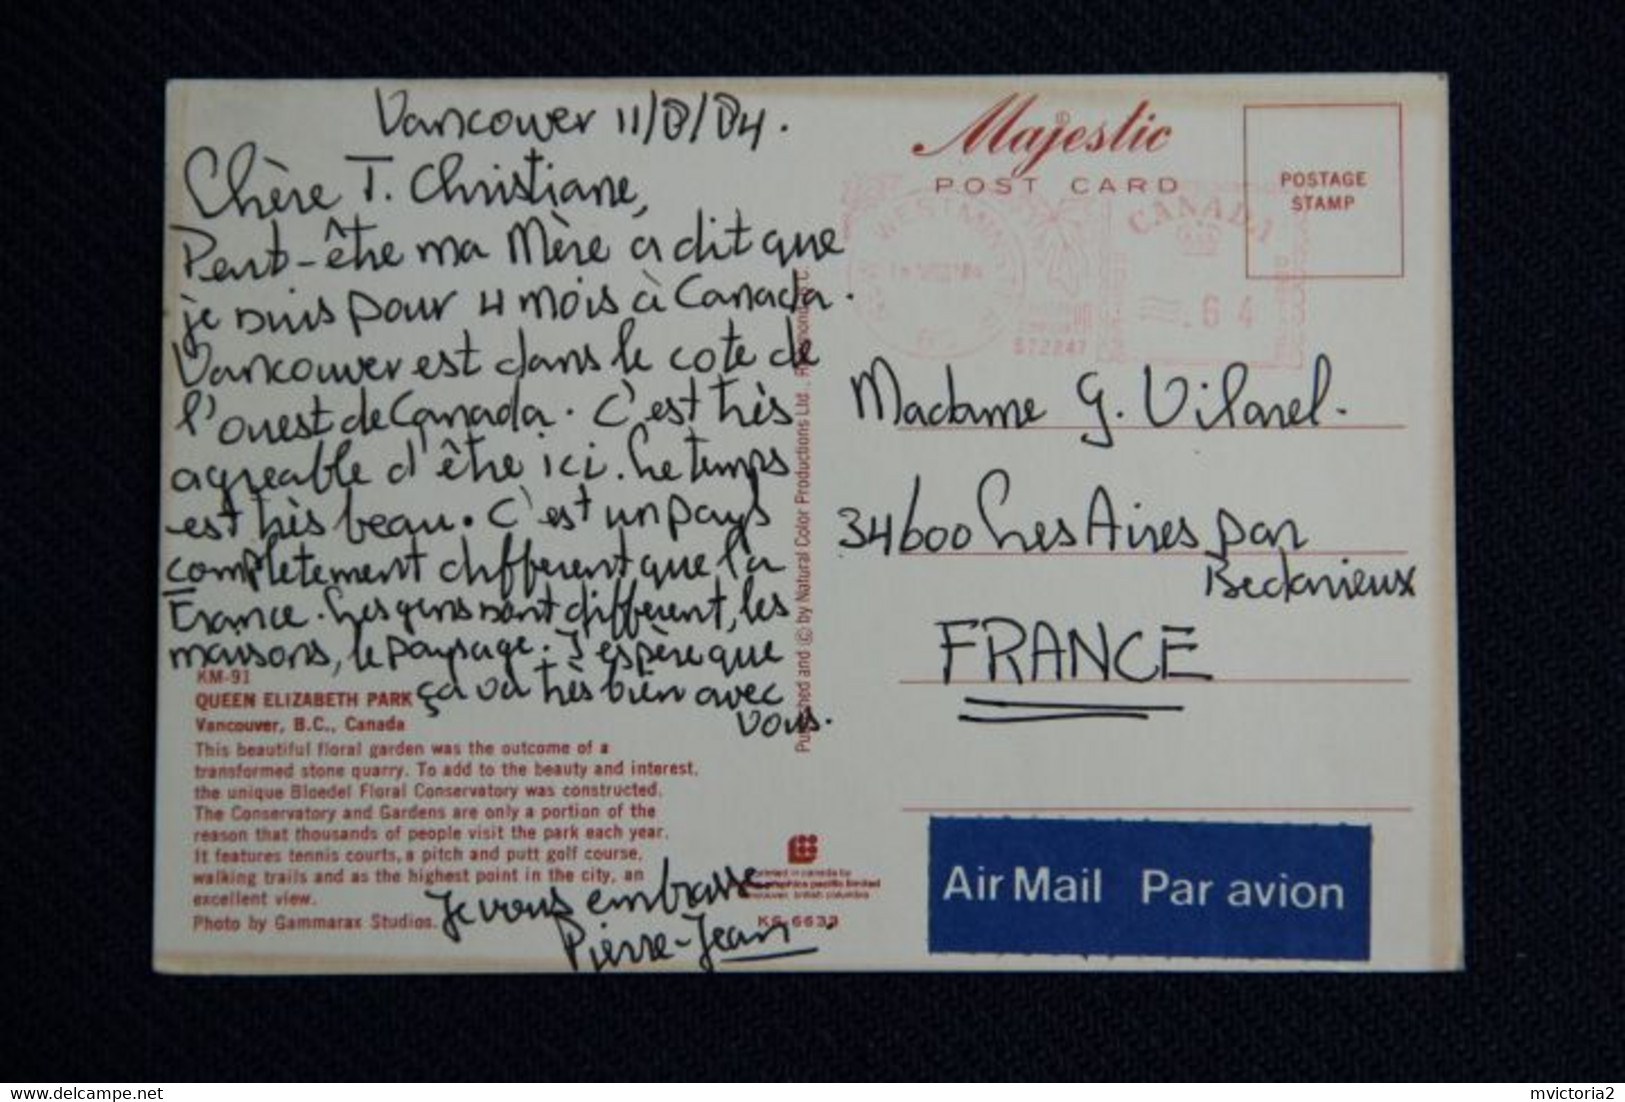 Vancouver 11/8/84.
Chère T. Christiane,
Peut-être ma Mère a dit que
je suis pour 4 mois à Canada.
Vancouver est dans le cote de
l'ouest de Canada. C'est très
agreable d'être ici. Le temps
est très beau. C'est un pays
completement different que la
France. Les gens sont different, les
maisons, le paysage. J'espère que
ça va très bien avec
vous.
KM-91
QUEEN ELIZABETH PARK
Vancouver, B.C., Canada
This beautiful floral garden was the outcome of a
transformed stone quarry. To add to the beauty and interest,
the unique Bloedel Floral Conservatory was constructed.
The Conservatory and Gardens are only a portion of the
reason that thousands of people visit the park each year.
It features tennis courts, a pitch and putt golf course,
walking trails and as the highest point in the city, an
excellent view.
Photo by Gammarax Studios.
Je vous embrasse
Pierre-Jean
Published and © by Natural Color Productions Ltd., Richmond, B.C.
printed in canada by
graphics pacific limited
vancouver, british columbia
KS-6639
Majestic
POST CARD
POSTAGE
STAMP
CANADA
.64
572247
Madame G. Vilarel.
34600 Les Aires par
FRANCE
Air Mail Par avion
mvictoria2